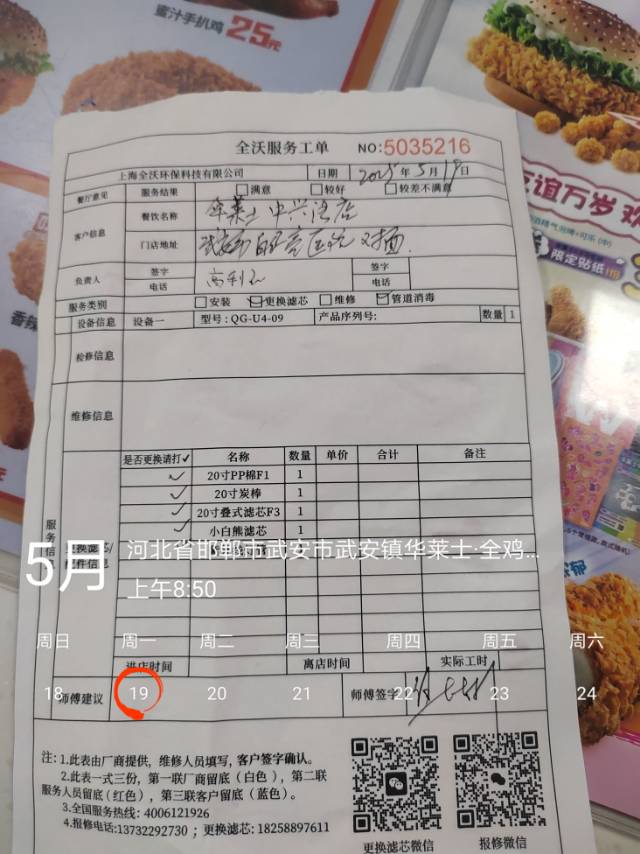 蜜汁手扒鸡 25元
全沃服务工单 NO:5035216
上海全沃环保科技有限公司 日期 2025年5月19日
餐厅意见 服务结果 满意 较好 较差不满意
客户信息 餐饮名称 华莱士中兴店
门店地址
负责人 签字 电话 签字 电话
服务类别 安装 更换滤芯 维修 管道消毒
设备信息 设备一 型号:QG-U4-09 产品序列号: 数量 1
检修信息
维修信息
服务信息 是否更换请打✓ 名称 数量 单价 合计 备注
✓ 20寸PP棉F1 1
✓ 20寸炭棒 1
✓ 20寸叠式滤芯F3 1
✓ 小白熊滤芯 1
更换滤芯/配件信息
5月 河北省邯郸市武安市武安镇华莱士·全鸡...
上午8:50
周日 周一 周二 周三 周四 周五 周六
进店时间 离店时间 实际工时
18 19 20 21 22 23 24
师傅建议 师傅签字
注:1.此表由厂商提供,维修人员填写,客户签字确认。
2.此表一式三份,第一联厂商留底(白色),第二联
服务人员留底(红色),第三联客户留底(蓝色)。
3.全国服务热线:4006121926
4.报修电话:13732292730;更换滤芯:18258897611
更换滤芯微信 报修微信
友谊万岁
限定贴纸
香辣